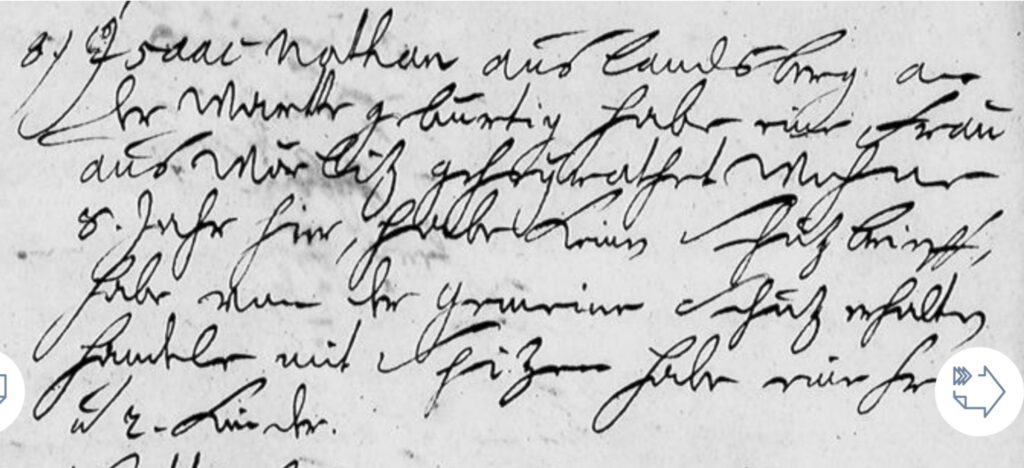 8) Isaac Nathan aus Landsberg an
der Warthe gebürtig habe eine Frau
aus Wörlitz geheÿrathet Wohne
8. Jahr hier, habe Keinen Schutz brieff,
habe von der Gemeine Schutz erhalten
handele mit Spitzen habe eine Fr
u/ 2. Kinder.